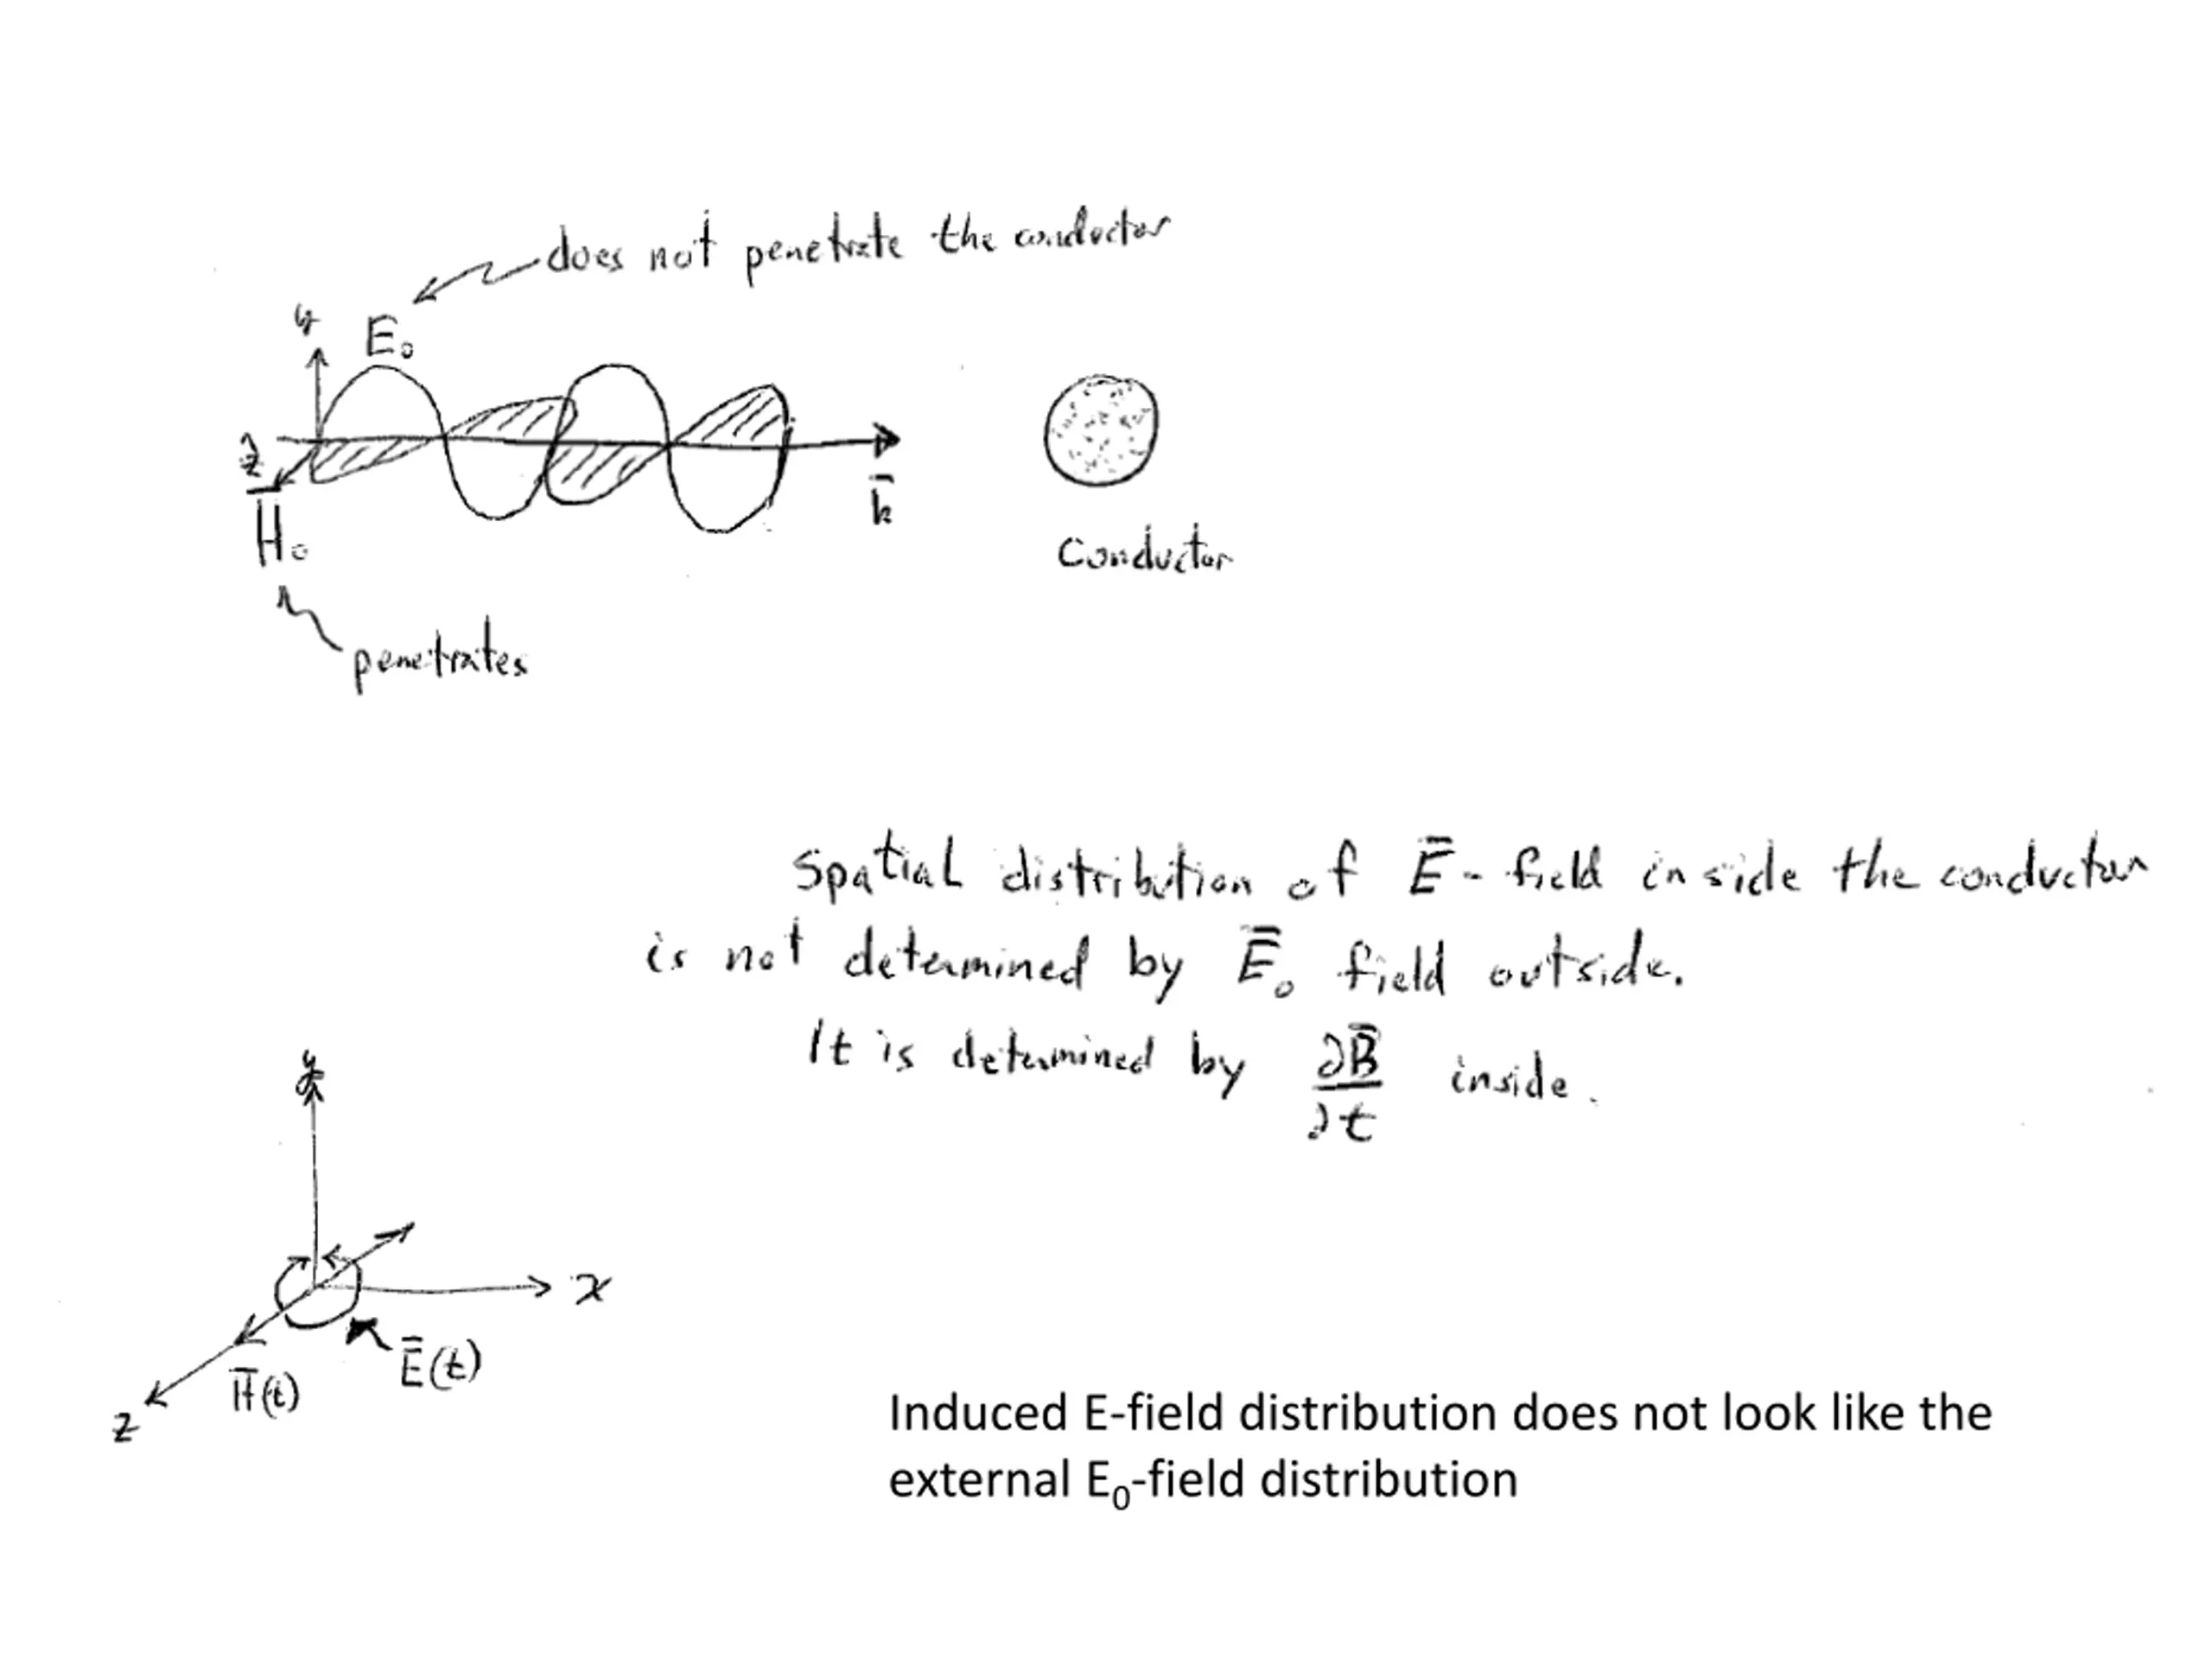 does not penetrate the conductor
y
E₀
ẑ
k̄
H₀
Conductor
penetrates
Spatial distribution of Ē-field inside the conductor
is not determined by Ē₀ field outside.
It is determined by ∂B̄/∂t inside.
y
x
Ē(t)
H̄(t)
z
Induced E-field distribution does not look like the
external E₀-field distribution